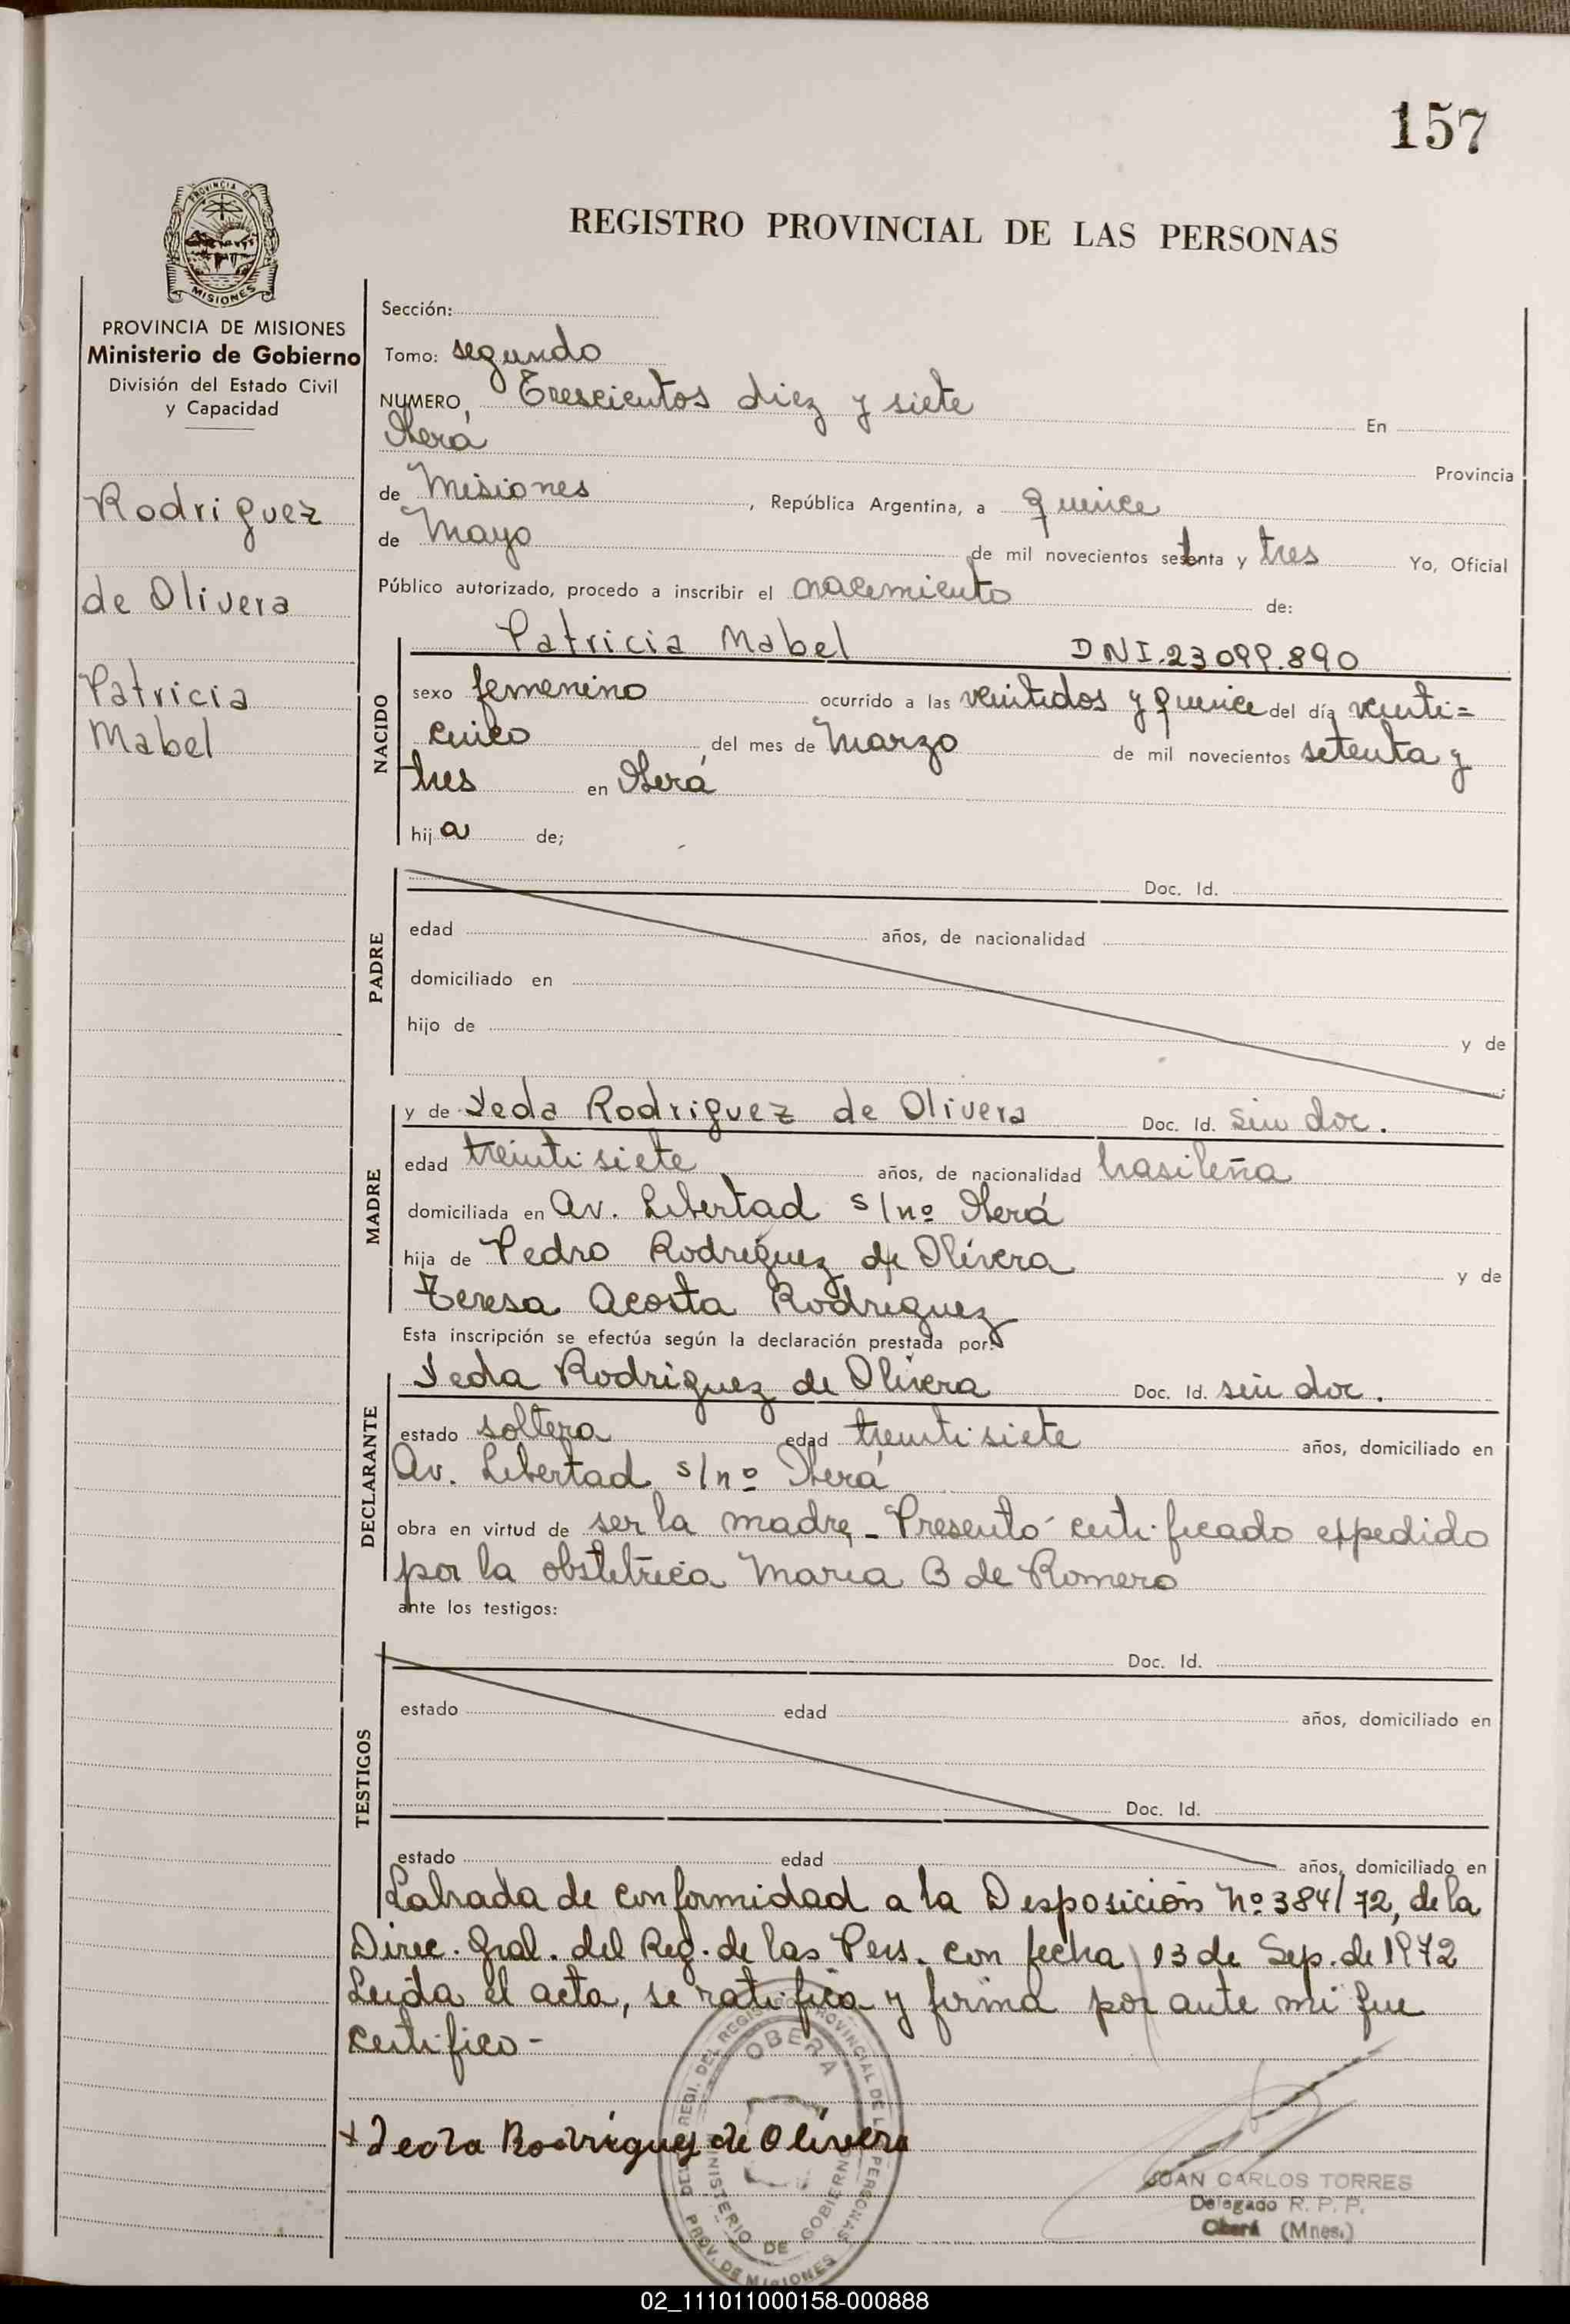 157
REGISTRO PROVINCIAL DE LAS PERSONAS
PROVINCIA DE
MISIONES
PROVINCIA DE MISIONES
Ministerio de Gobierno
División del Estado Civil
y Capacidad
Rodriguez
de Olivera
Patricia
Mabel
Sección:
Tomo: segundo
NUMERO Trescientos diez y siete En
Oberá Provincia
de Misiones, República Argentina, a quince
de Mayo de mil novecientos setenta y tres Yo, Oficial
Público autorizado, procedo a inscribir el nacimiento de:
NACIDO
Patricia Mabel DNI.23099.890
sexo femenino ocurrido a las veintidos y quince del día veinti=
cinco del mes de Marzo de mil novecientos setenta y
tres en Oberá
hija de;
PADRE
Doc. Id.
edad años, de nacionalidad
domiciliado en
hijo de y de
MADRE
y de Ieda Rodriguez de Olivera Doc. Id. sin doc.
edad treinti siete años, de nacionalidad brasileña
domiciliada en Av. Libertad s/nº Oberá
hija de Pedro Rodriguez de Olivera y de
Teresa Acosta Rodriguez
Esta inscripción se efectúa según la declaración prestada por:
DECLARANTE
Ieda Rodriguez de Olivera Doc. Id. sin doc.
estado soltera edad treinti siete años, domiciliado en
Av. Libertad s/nº Oberá
obra en virtud de ser la madre - Presentó certificado expedido
por la obstetrica Maria B de Romero
ante los testigos:
TESTIGOS
Doc. Id.
estado edad años, domiciliado en
Doc. Id.
estado edad años, domiciliado en
Labrada de conformidad a la Desposición Nº 384/72, de la
Direc. Gral. del Reg. de las Pers. con fecha 13 de Sep. de 1972
Leida el acta, se ratifica y firma por ante mi que
certifico -
Ieda Rodriguez de Olivera
OBERA
REGI. DEL REGISTRO PROVINCIAL DE LAS PERSONAS
MINISTERIO DE GOBIERNO
PROV. DE MISIONES
JUAN CARLOS TORRES
Delegado R. P. P.
Oberá (Mnes.)
02_111011000158-000888